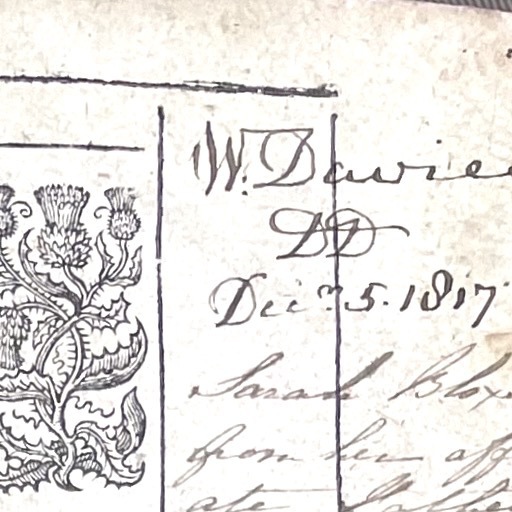 W. Davies
DD
Decr. 5. 1817
Sarah Blox
from her aff
ate Father